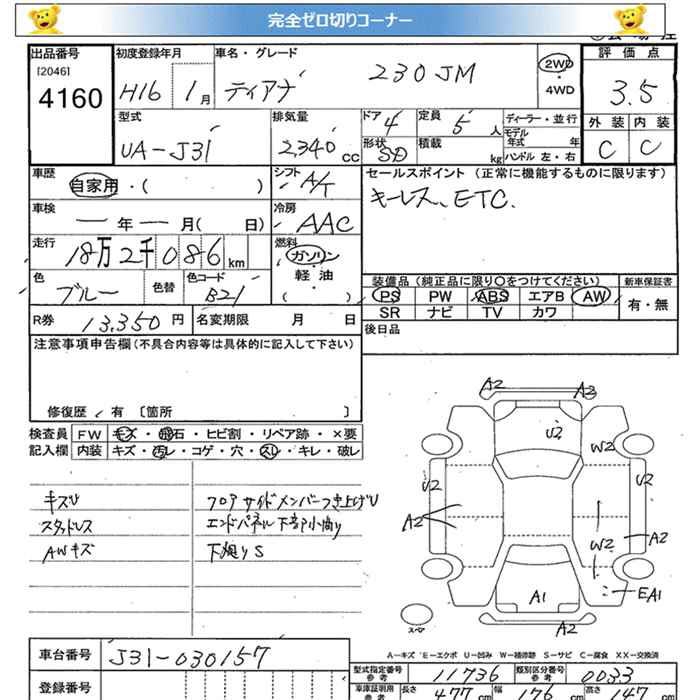 完全ゼロ切りコーナー
出品番号 初度登録年月 車名・グレード 評価点
[2046] 2WD ・ 4WD
4160 H16 1月 ティアナ 230JM 3.5
型式 排気量 ドア 定員 ディーラー・並行 外装 内装
UA-J31 2340cc 4 5人 モデル年式 年 C C
形状 SD 積載 kg ハンドル 左・右
車歴 シフト セールスポイント (正常に機能するものに限ります)
自家用・( ) A/T キーレス、ETC.
車検 冷房
ー年ー月( 日) AAC
走行 燃料
18万2千086km ガソリン・軽油 ( )
色 色替 色コード 装備品(純正品に限り○をつけてください) 新車保証書
ブルー B21 PS PW ABS エアB AW 有・無
SR ナビ TV カワ
R券 13,350円 名変期限 月 日 後日品
注意事項申告欄(不具合内容等は具体的に記入して下さい)
修復歴 有 [箇所 ]
検査員記入欄 FW キズ・飛石・ヒビ割・リペア跡・×要
内装 キズ・汚レ・コゲ・穴・スレ・キレ・破レ
キズU フロアサイドメンバーつき上げU
スタッドレス エンドパネル下部小曲り
AWキズ 下廻りS
A2 A3
U2
W2
U2 U2
A2 W2 A2
A1 EA1
スペア A2
A-キズ E-エクボ U-凹み W-補修跡 S-サビ C-腐食 XX-交換済
車台番号 J31-030157
登録番号
型式指定番号 参考 11736 類別区分番号 参考 0033
車庫証明用 参考 長さ 477cm 幅 176cm 高さ 147cm